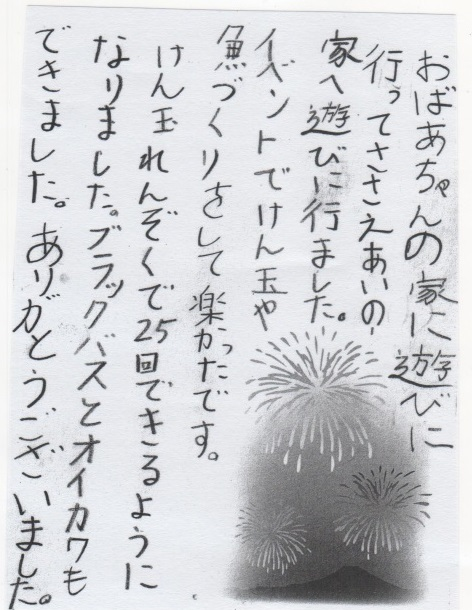 おばあちゃんの家に遊びに
行ってささえあいの
家へ遊びに行ました。
イベントでけん玉や
魚づくりをして楽かったです。
けん玉れんぞくで25回できるように
なりました。ブラックバスとオイカワも
できました。ありがとうございました。